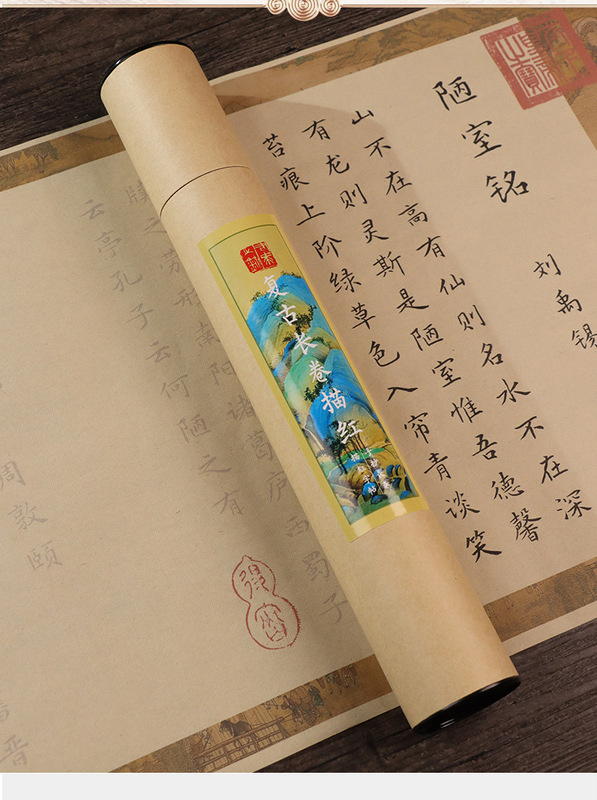 陋室铭
刘禹锡
山不在高有仙则名水不在深
有龙则灵斯是陋室惟吾德馨
苔痕上阶绿草色入帘青谈笑
复古长卷描红
牍之劳形南阳诸葛庐西蜀子
云亭孔子云何陋之有
周敦颐
蕃晋